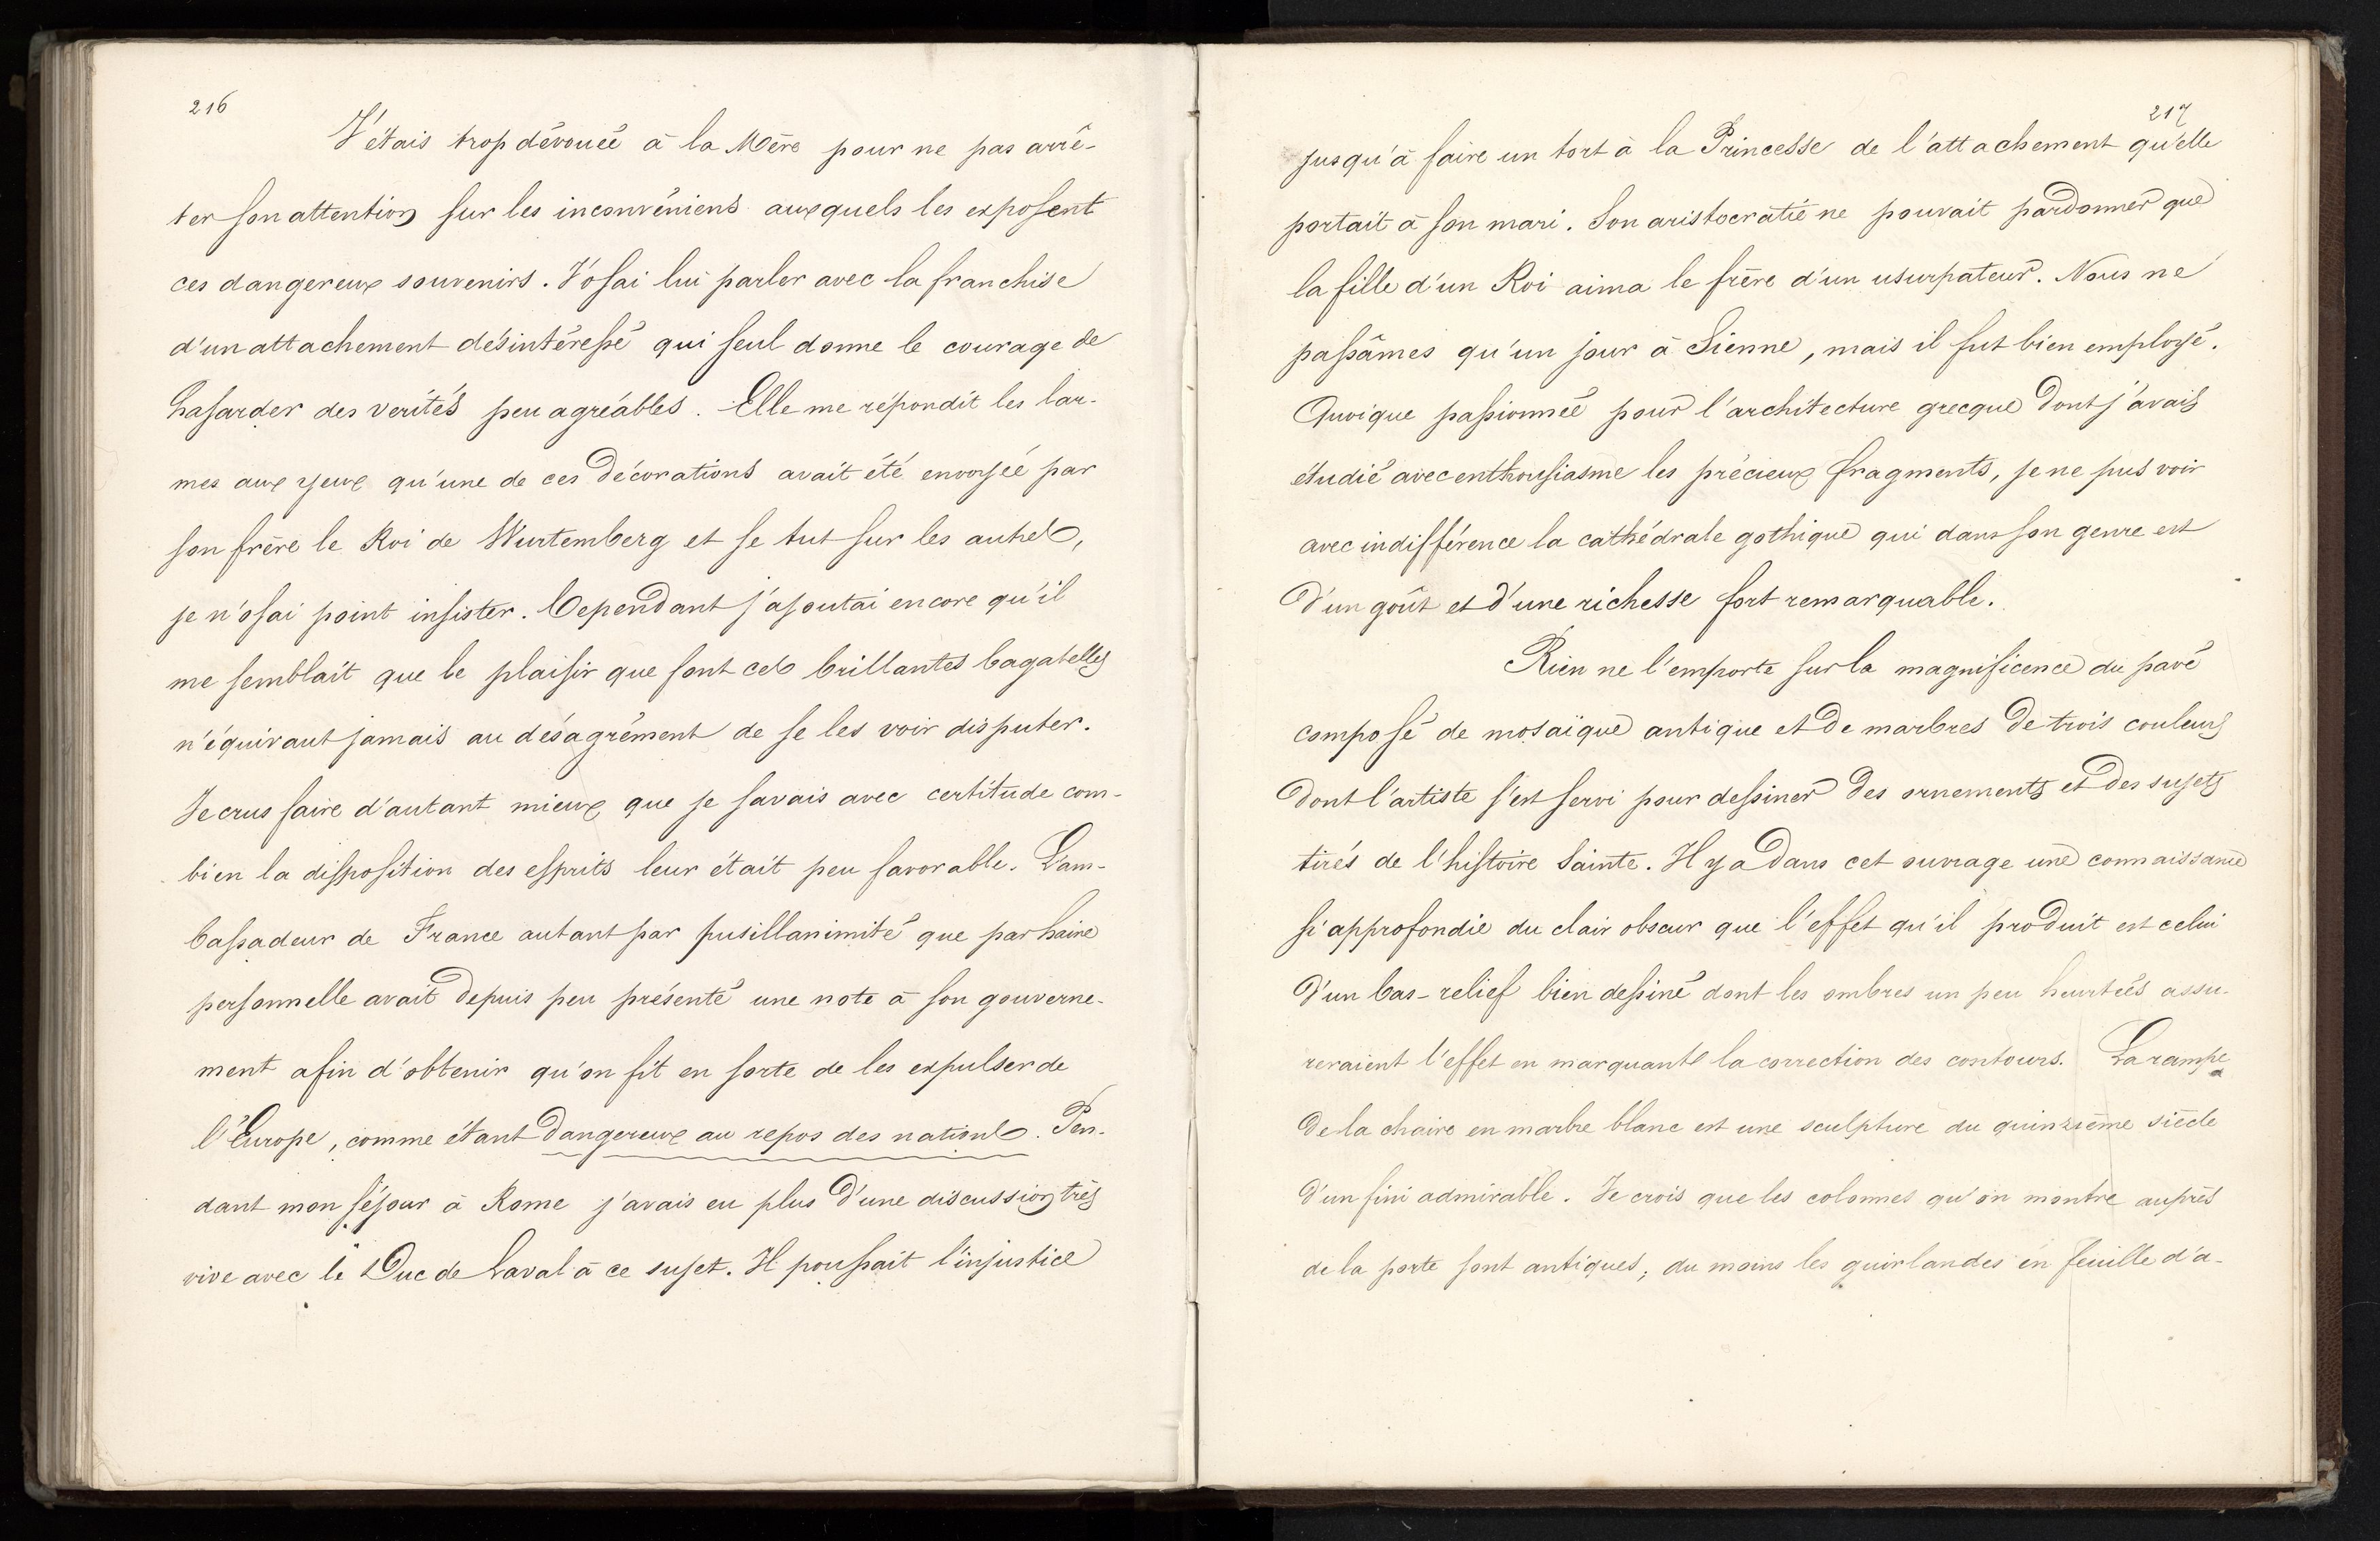 216
J'étais trop dévouée à la Mère pour ne pas arrê-
ter son attention sur les inconvéniens auxquels les exposent
ces dangereux souvenirs. J'osai lui parler avec la franchise
d'un attachement désintéressé qui seul donne le courage de
hasarder des verités peu agréables. Elle me répondit les lar-
mes aux yeux qu'une de ces décorations avait été envoyée par
son frère le Roi de Wurtemberg et se tut sur les autres,
je n'osai point insister. Cependant j'ajoutai encore qu'il
me semblait que le plaisir que font ces brillantes bagatelles
n'équivaut jamais au désagrément de se les voir disputer.
Je crus faire d'autant mieux que je savais avec certitude com-
bien la disposition des esprits leur était peu favorable. L'am-
bassadeur de France autant par pusillanimité que par haine
personnelle avait depuis peu présenté une note à son gouverne-
ment afin d'obtenir qu'on fit en sorte de les expulser de
l'Europe, comme étant dangereux au repos des nations. Pen-
dant mon séjour à Rome j'avais eu plus d'une discussion très
vive avec le Duc de Laval à ce sujet. Il poussait l'injustice
217
jusqu'à faire un tort à la Princesse de l'attachement qu'elle
portait à son mari. Son aristocratie ne pouvait pardonner que
la fille d'un Roi aima le frère d'un usurpateur. Nous ne
passâmes qu'un jour à Sienne, mais il fut bien employé.
Quoique passionnée pour l'architecture grecque dont j'avais
étudié avec enthousiasme les précieux fragments, je ne pus voir
avec indifférence la cathédrale gothique qui dans son genre est
d'un goût et d'une richesse fort remarquable.
Rien ne l'emporte sur la magnificence du pavé
composé de mosaïque antique et de marbres de trois couleurs
dont l'artiste s'est servi pour dessiner des ornements et des sujets
tirés de l'histoire Sainte. Il y a dans cet ouvrage une connaissance
si approfondie du clair obscur que l'effet qu'il produit est celui
d'un bas-relief bien dessiné dont les ombres un peu heurtées assu-
reraient l'effet en marquant la correction des contours. La rampe
de la chaire en marbre blanc est une sculpture du quinzième siècle
d'un fini admirable. Je crois que les colonnes qu'on montre auprès
de la porte sont antiques; du moins les guirlandes en feuille d'a-